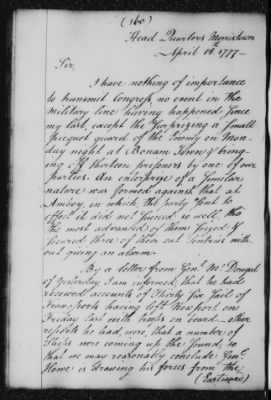 (160)
Head Quarters Morristown
April 18th 1777—
Sir,
I have nothing of importance
to transmit Congress, no event in the
military line having happened since
my last, except the surprizing a small
picquet guard of the Enemy on Mon-
day night at Bonam Town & bring-
ing off thirteen prisoners by one of our
parties. An enterprise of a similar
nature was formed against that at
Amboy, in which the party sent to
effect it did not succeed so well, tho
the most advanced of them seized &
secured three of their out Sentries with-
out giving an alarm.
By a letter from Genl. McDougal
of yesterday I am informed, that he had
received accounts of Thirty five Sail of
Transports having left Newport on
Friday last with troops on board—other
reports he had, were, that a number of
Ships were coming up the Sound, so
that we may reasonably conclude Genl.
Howe is drawing his forces from the
(Eastward)